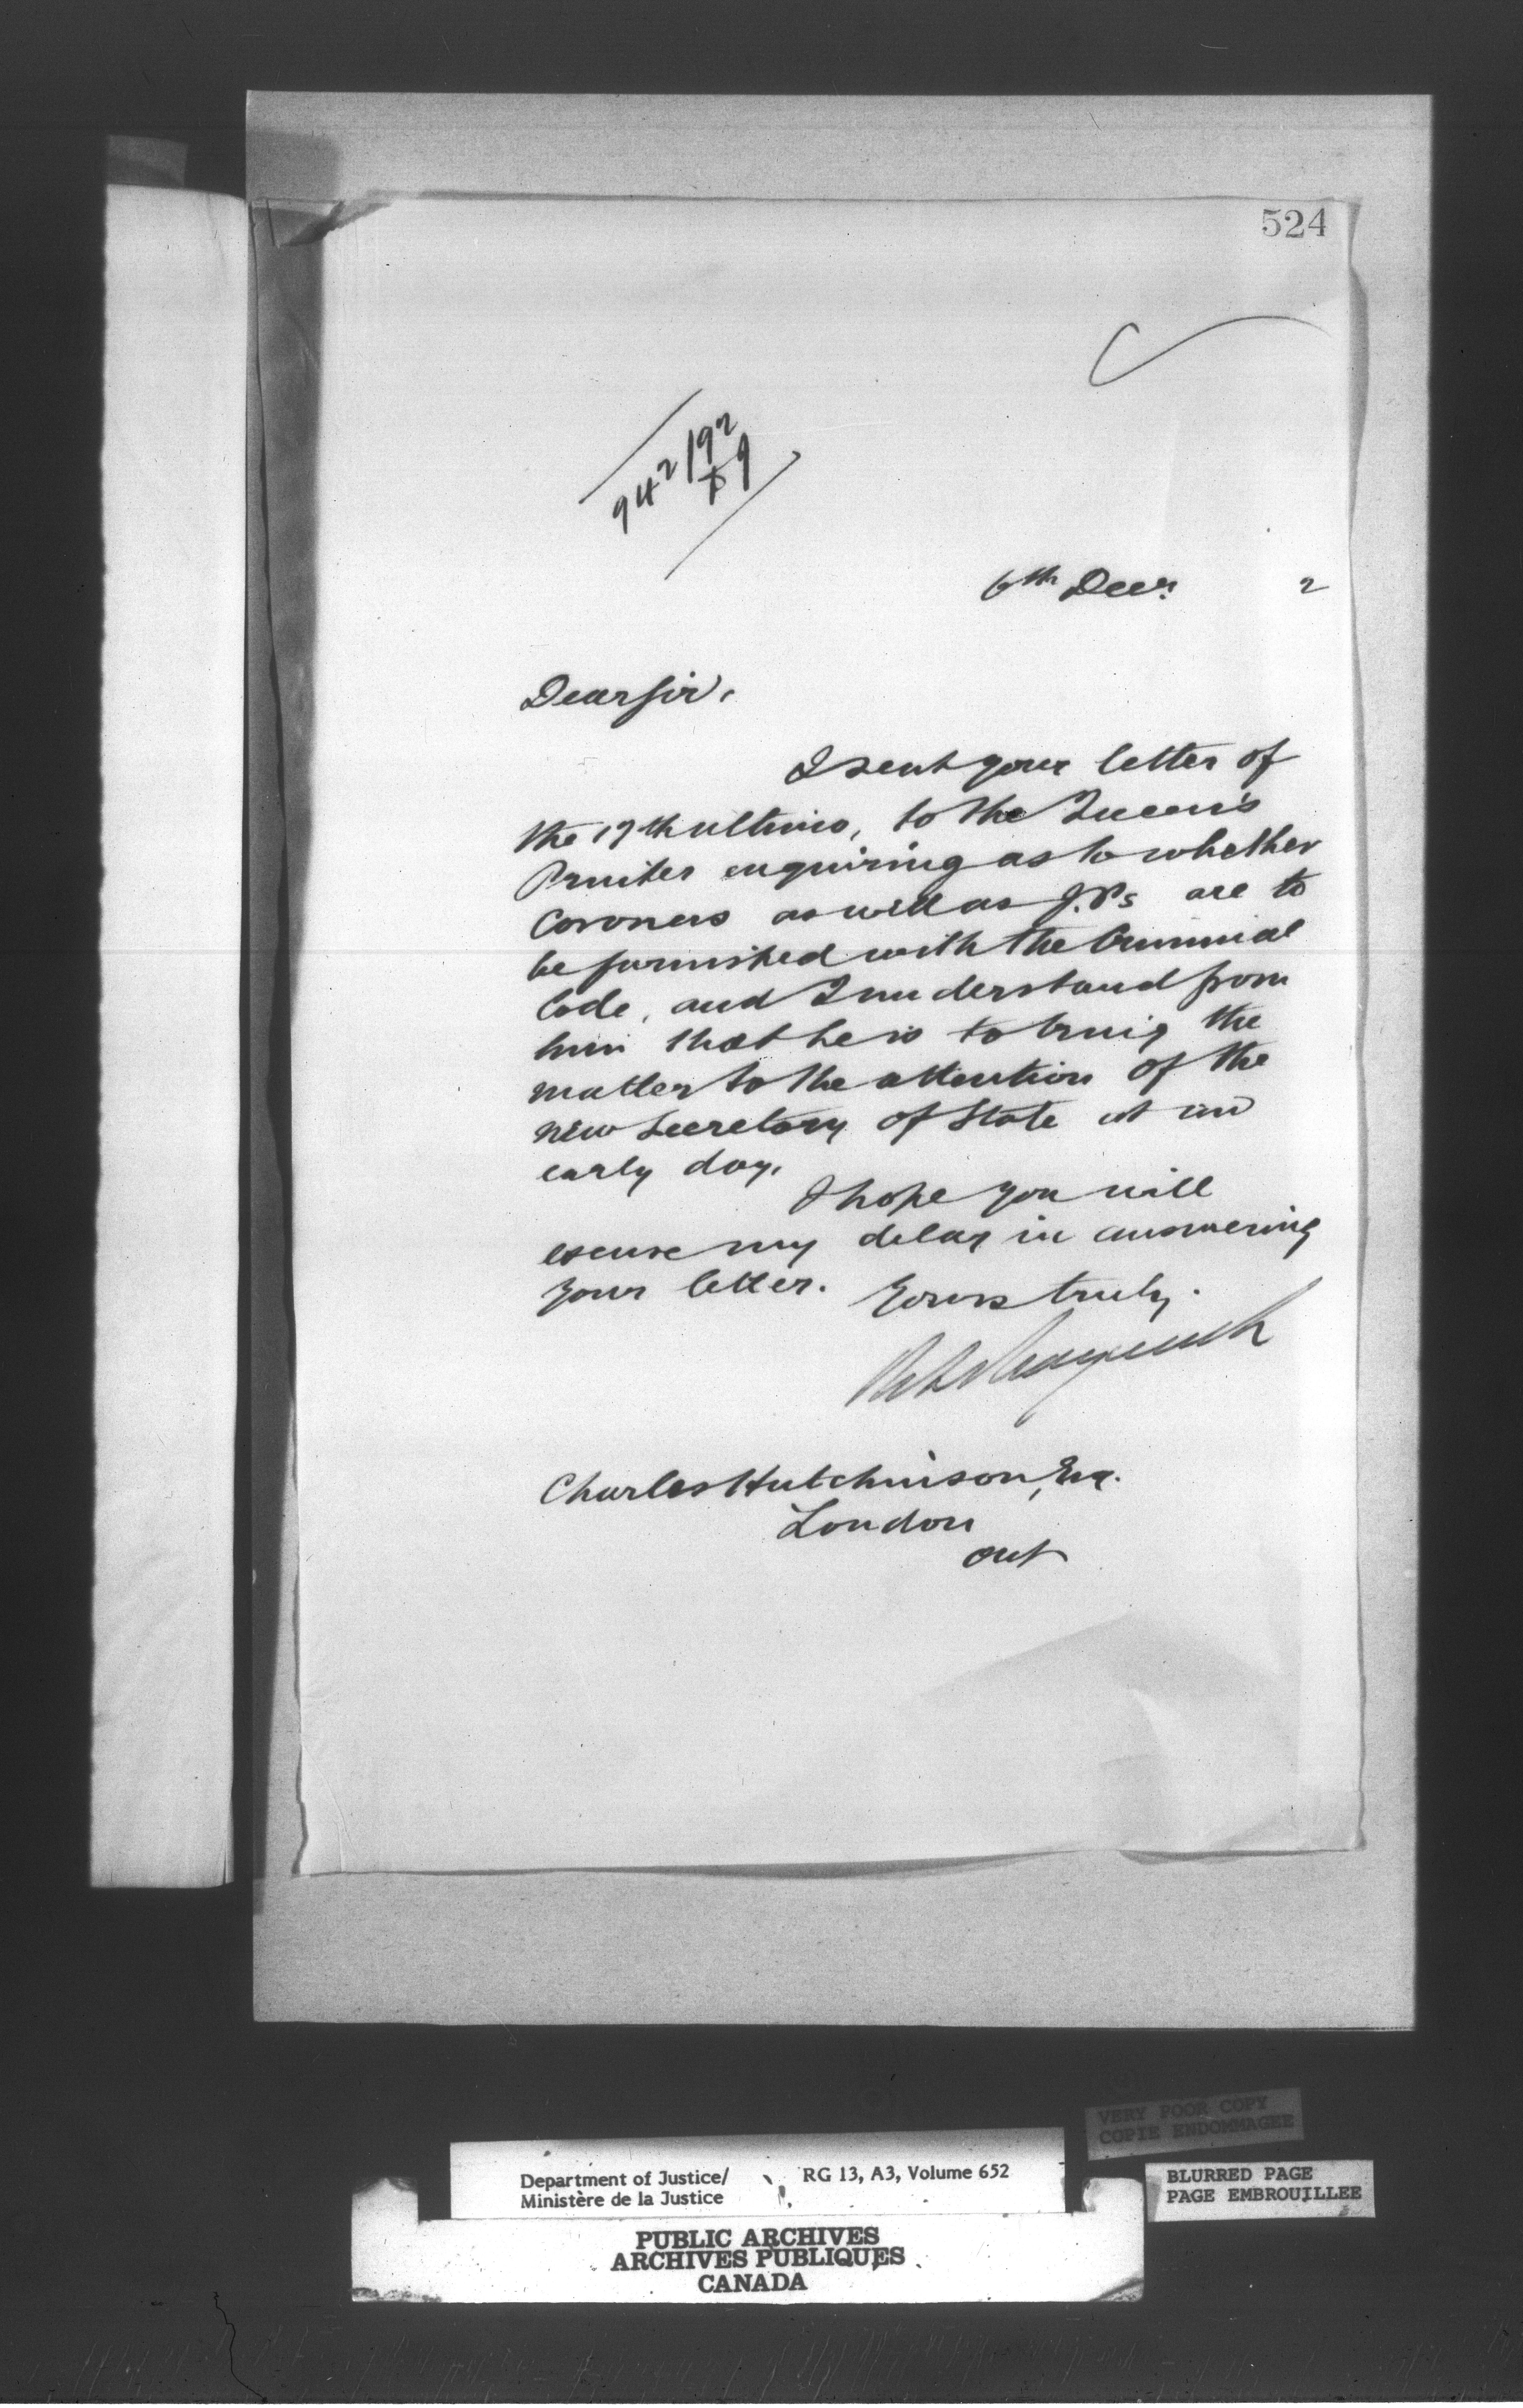 524
942/92
6th Decr. 2
Dear Sir,
I sent your letter of
the 17th ultimo, to the Queen's
Printer enquiring as to whether
Coroners as well as J.Ps are to
be furnished with the Criminal
Code, and I understand from
him that he is to bring the
matter to the attention of the
new Secretary of State at an
early day.
I hope you will
excuse my delay in answering
your letter. Yours truly.
Charles Hutchinson, Esq.
London
Ont
VERY POOR COPY
COPIE ENDOMMAGEE
Department of Justice/ RG 13, A3, Volume 652
Ministère de la Justice
BLURRED PAGE
PAGE EMBROUILLEE
PUBLIC ARCHIVES
ARCHIVES PUBLIQUES
CANADA